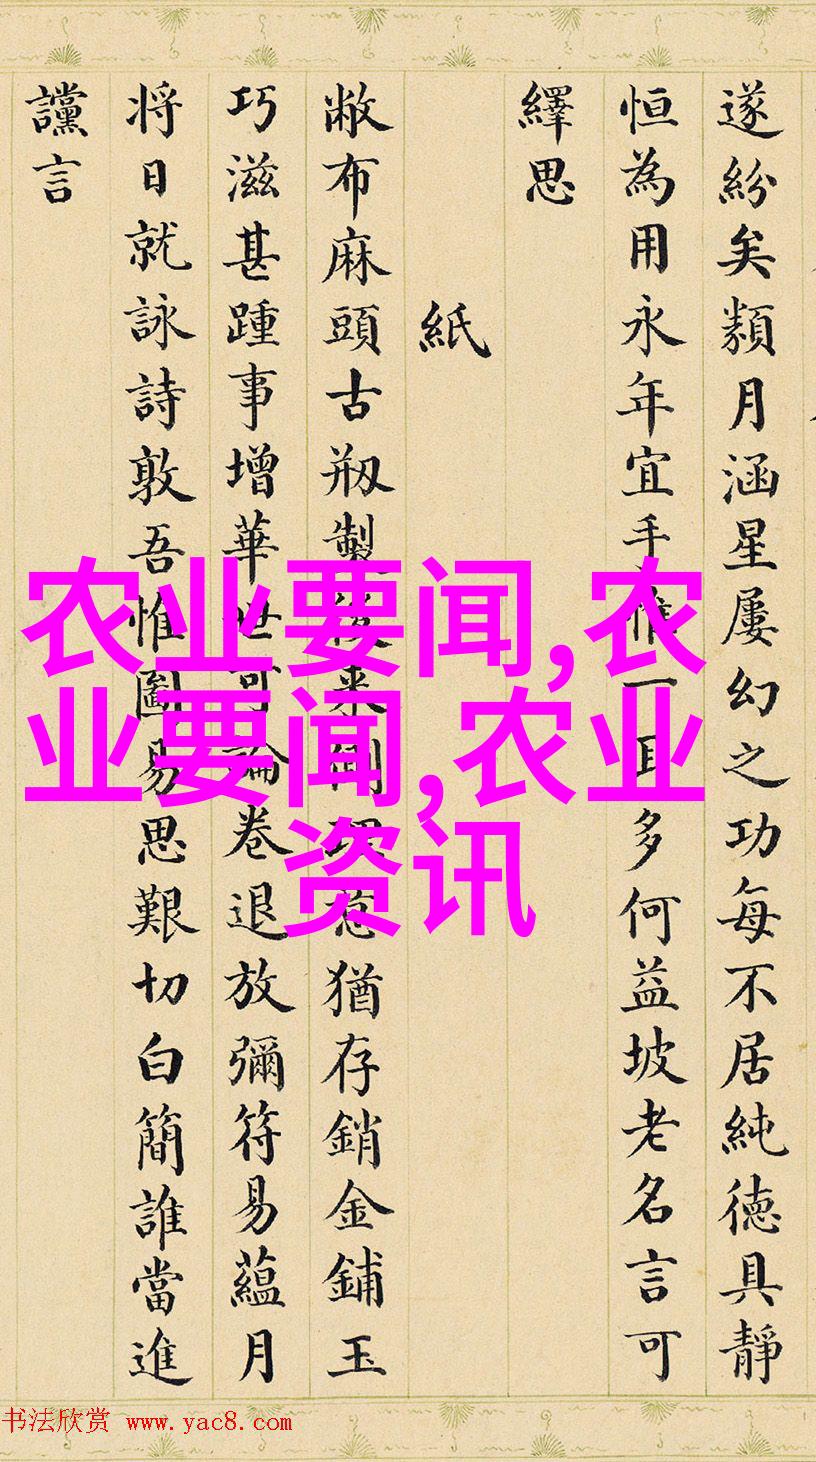 遂紛矣類月涵星屡幻之功每不居純德具靜
恒為用永年宜手惟一耳多何益坡老名言可
繹思
紙
敝布麻頭古剏製後来側理猶存銷金鋪玉
巧滋甚踵事增華世可論卷退放彌符易蘊月
将日就詠詩敦吾惟圖易思艱切白簡誰當進
讜言
农业要闻,农
业要闻,农业
资讯
书法欣赏 www.yac8.com